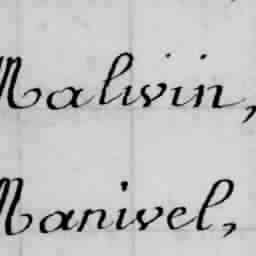 Malivin,
Manivel,